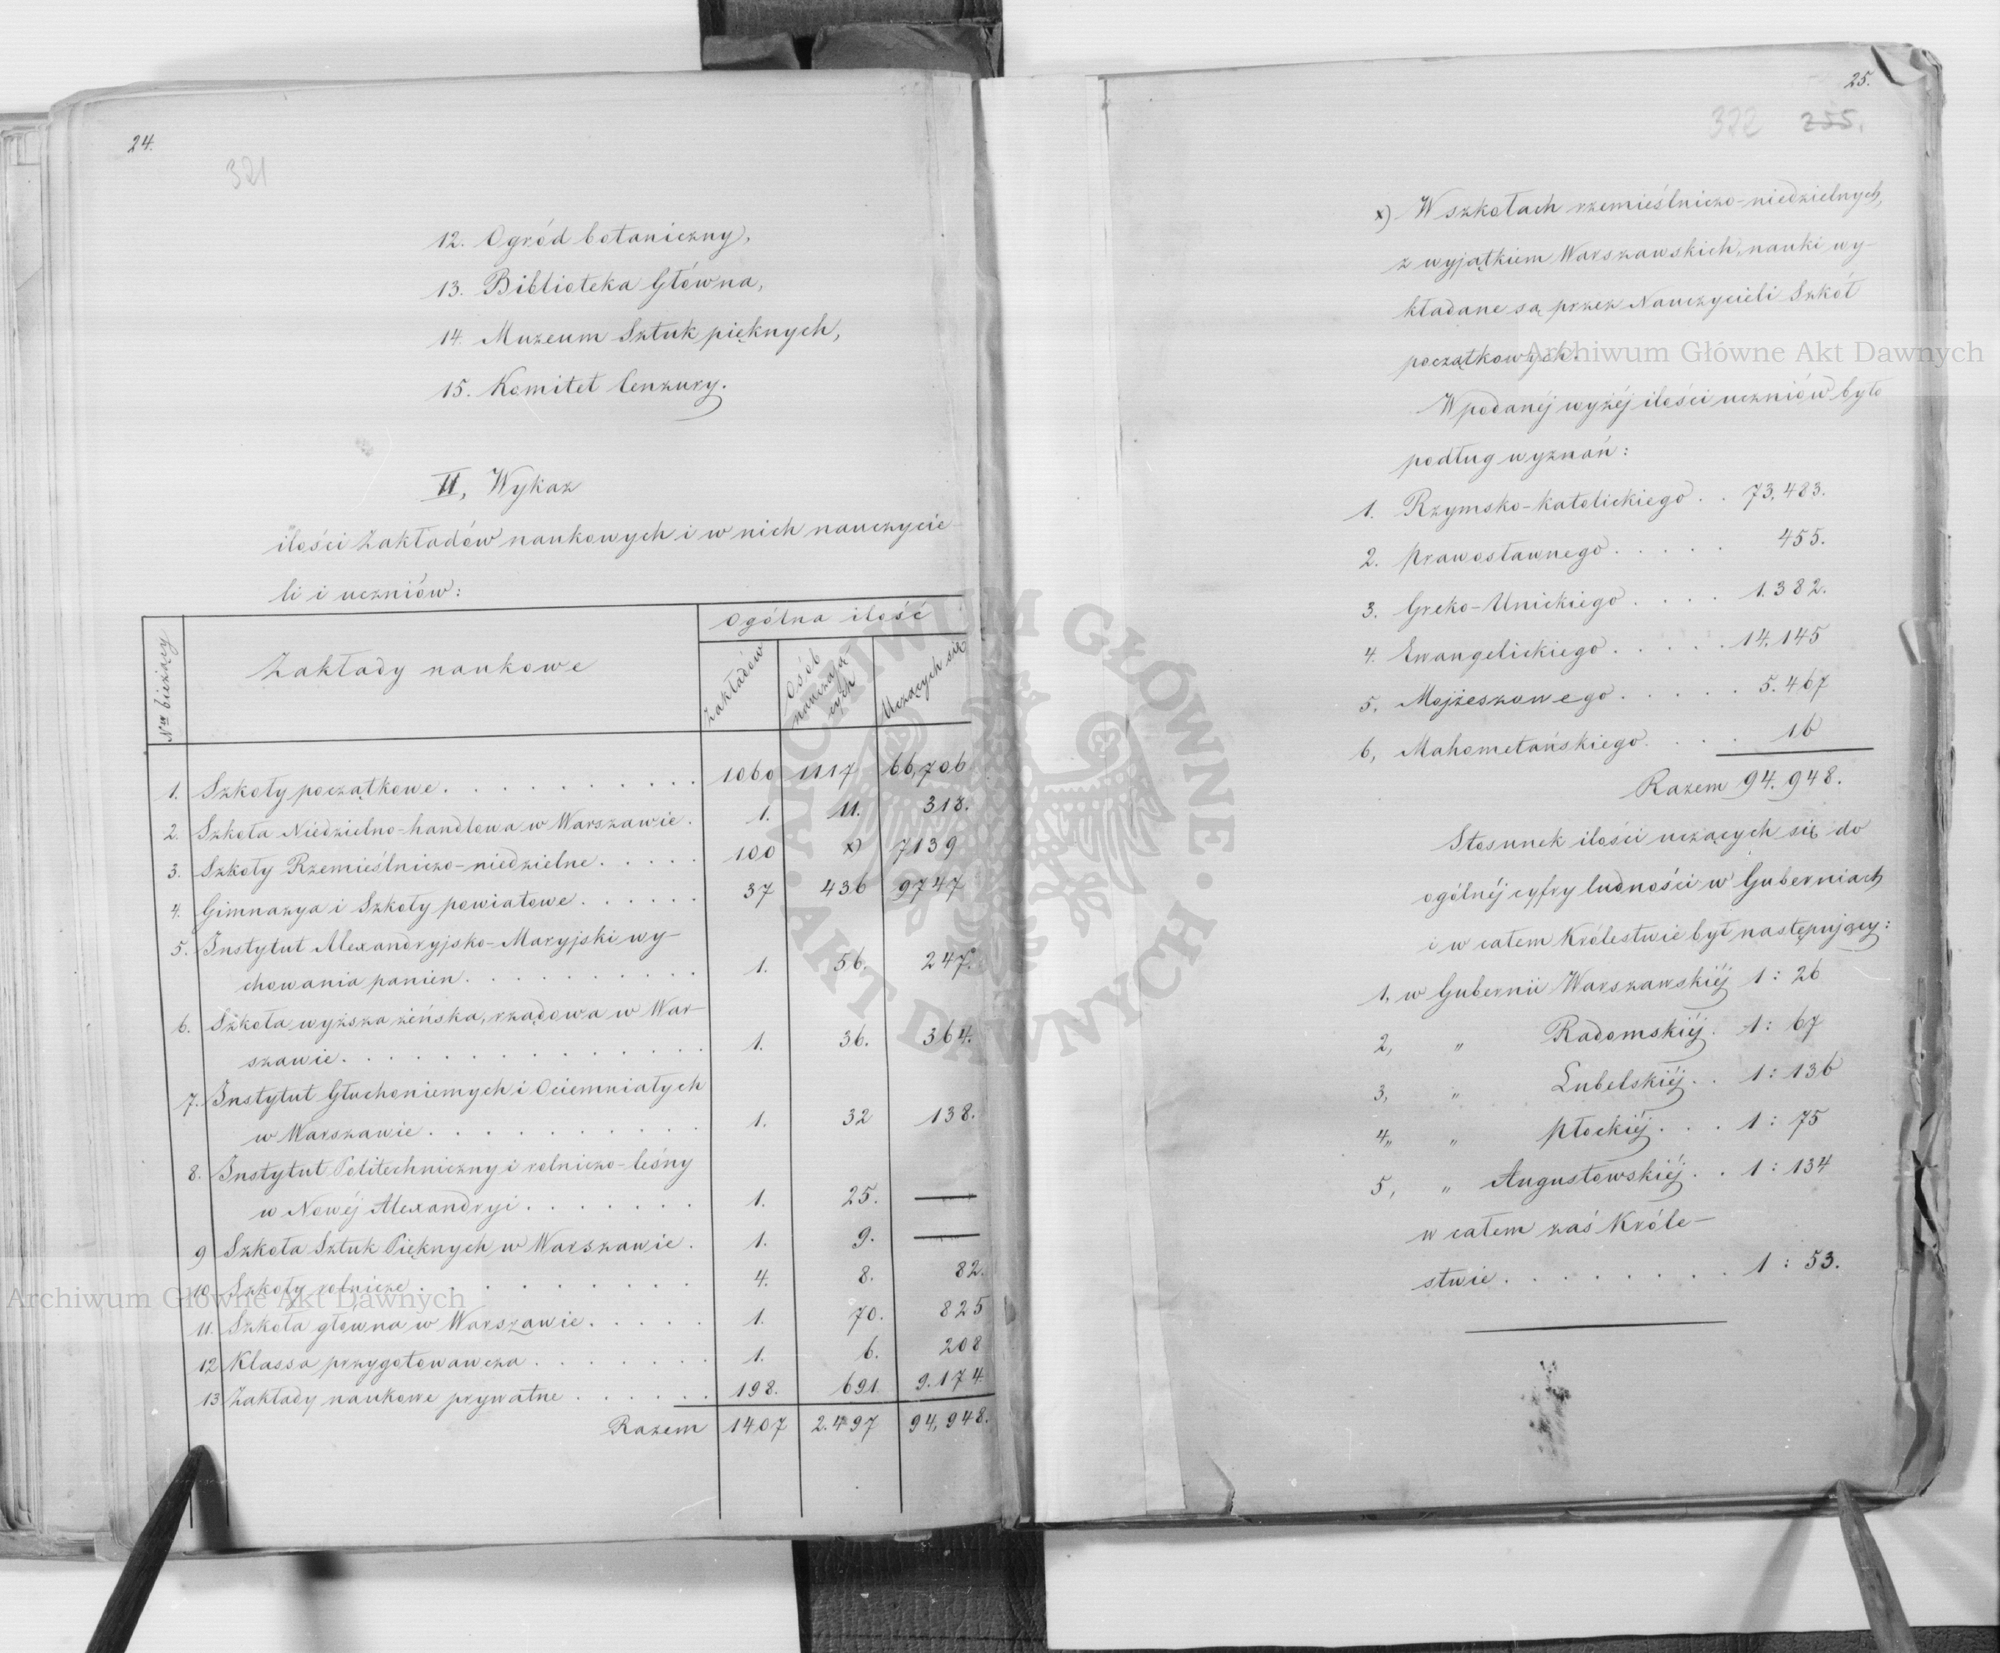 24.
321
12. Ogród botaniczny,
13. Biblioteka Główna,
14. Muzeum Sztuk pięknych,
15. Komitet Cenzury.
II, Wykaz
ilości Zakładów naukowych i w nich nauczycie-
li i uczniów:
Nr bieżący
Zakłady naukowe
Ogólna ilość
Zakładów
Osób nauczają- cych
Uczących się
1. Szkoły początkowe . . . . . . . . . 1060 1117 66,706
2. Szkoła Niedzielno-handlowa w Warszawie . 1. 11. 318.
3. Szkoły Rzemieślniczo-niedzielne . . . . . 100 x) 7139
4. Gimnazya i Szkoły powiatowe . . . . . . 37 436 9747
5. Instytut Alexandryjsko-Maryjski wy-
chowania panien . . . . . . . . . 1. 56. 247.
6. Szkoła wyższa żeńska, rządowa w War-
szawie . . . . . . . . . . . . . 1. 36. 364.
7. Instytut Głuchoniemych i Ociemniałych
w Warszawie . . . . . . . . . . 1. 32 138.
8. Instytut Politechniczny i rolniczo-leśny
w Nowéj Alexandryi . . . . . . . 1. 25. —
9 Szkoła Sztuk Pięknych w Warszawie . 1. 9. —
10 Szkoły rolnicze . . . . . . . . . 4. 8. 82.
11. Szkoła główna w Warszawie . . . . . 1. 70. 825
12 Klassa przygotowawcza . . . . . . . 1. 6. 208
13 Zakłady naukowe prywatne . . . . . . 198. 691 9.174
Razem 1407 2.497 94,948.
25.
322 255.
x) W szkołach rzemieślniczo-niedzielnych,
z wyjątkiem Warszawskich, nauki wy-
kładane są przez Nauczycieli Szkół
początkowych.
W podanéj wyżéj ilości uczniów było
podług wyznań:
1. Rzymsko-katolickiego . . 73.483.
2. Prawosławnego . . . . . 455.
3. Greko-Unickiego . . . . 1.382.
4. Ewangelickiego . . . . . 14,145
5. Mojżeszowego . . . . . 5.467
6, Mahometańskiego . . . . 16
Razem 94.948.
Stosunek ilości uczących się do
ogólnéj cyfry ludności w Guberniach
i w całem Królestwie był następujący:
1, w Gubernii Warszawskiéj 1 : 26
2, " Radomskiéj . 1 : 67
3, " Lubelskiéj . . 1 : 136
4,, " Płockiéj . . . 1 : 75
5, " Augustowskiéj . . 1 : 134
w całem zaś Króle-
stwie . . . . . . . . 1 : 53.
Archiwum Główne Akt Dawnych
Archiwum Główne Akt Dawnych
ARCHIWUM GŁÓWNE · AKT DAWNYCH ·